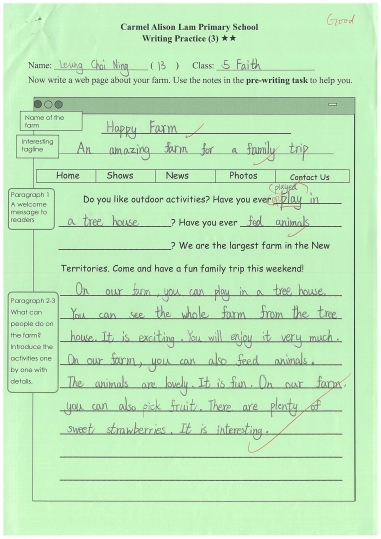 Good
Carmel Alison Lam Primary School
Writing Practice (3) ★★
Name: Leung Choi Ning (13) Class: 5 Faith
Now write a web page about your farm. Use the notes in the pre-writing task to help you.
Name of the farm
Happy Farm
Interesting tagline
An amazing farm for a family trip
Home Shows News Photos Contact Us
Paragraph 1
A welcome message to readers
played
Do you like outdoor activities? Have you ever play in
a tree house ? Have you ever fed animals
? We are the largest farm in the New
Territories. Come and have a fun family trip this weekend!
Paragraph 2-3
What can people do on the farm? Introduce the activities one by one with details.
On our farm, you can play in a tree house.
You can see the whole farm from the tree
house. It is exciting. You will enjoy it very much.
On our farm, you can also feed animals.
The animals are lovely. It is fun. On our farm,
you can also pick fruit. There are plenty of
sweet strawberries. It is interesting.